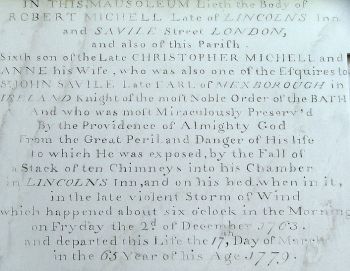 IN THIS, MAUSOLEUM Lieth the Body of
ROBERT MICHELL Late of LINCOLNS Inn
and SAVILE Street LONDON,
and also of this Pariſh.
Sixth son of the Late CHRISTOPHER MICHELL and
ANNE his Wife, who was also one of the Eſquires to
Sr. JOHN SAVILE Late EARL of MEXBOROUGH in
IRELAND Knight of the moſt Noble Order of the BATH
And who was moſt Miraculously Preserv'd
By the Providence of Almighty God
From the Great Peril and Danger of His life
to which He was exposed, by the Fall of
a Stack of ten Chimneys into his Chamber
in LINCOLNS Inn, and on his bed, when in it,
in the late violent Storm of Wind
which happened about six o'clock in the Morning
on Fryday the 2d. of December 1763.
and departed this Life the 17th Day of March
in the 63 Year of his Age 1779.